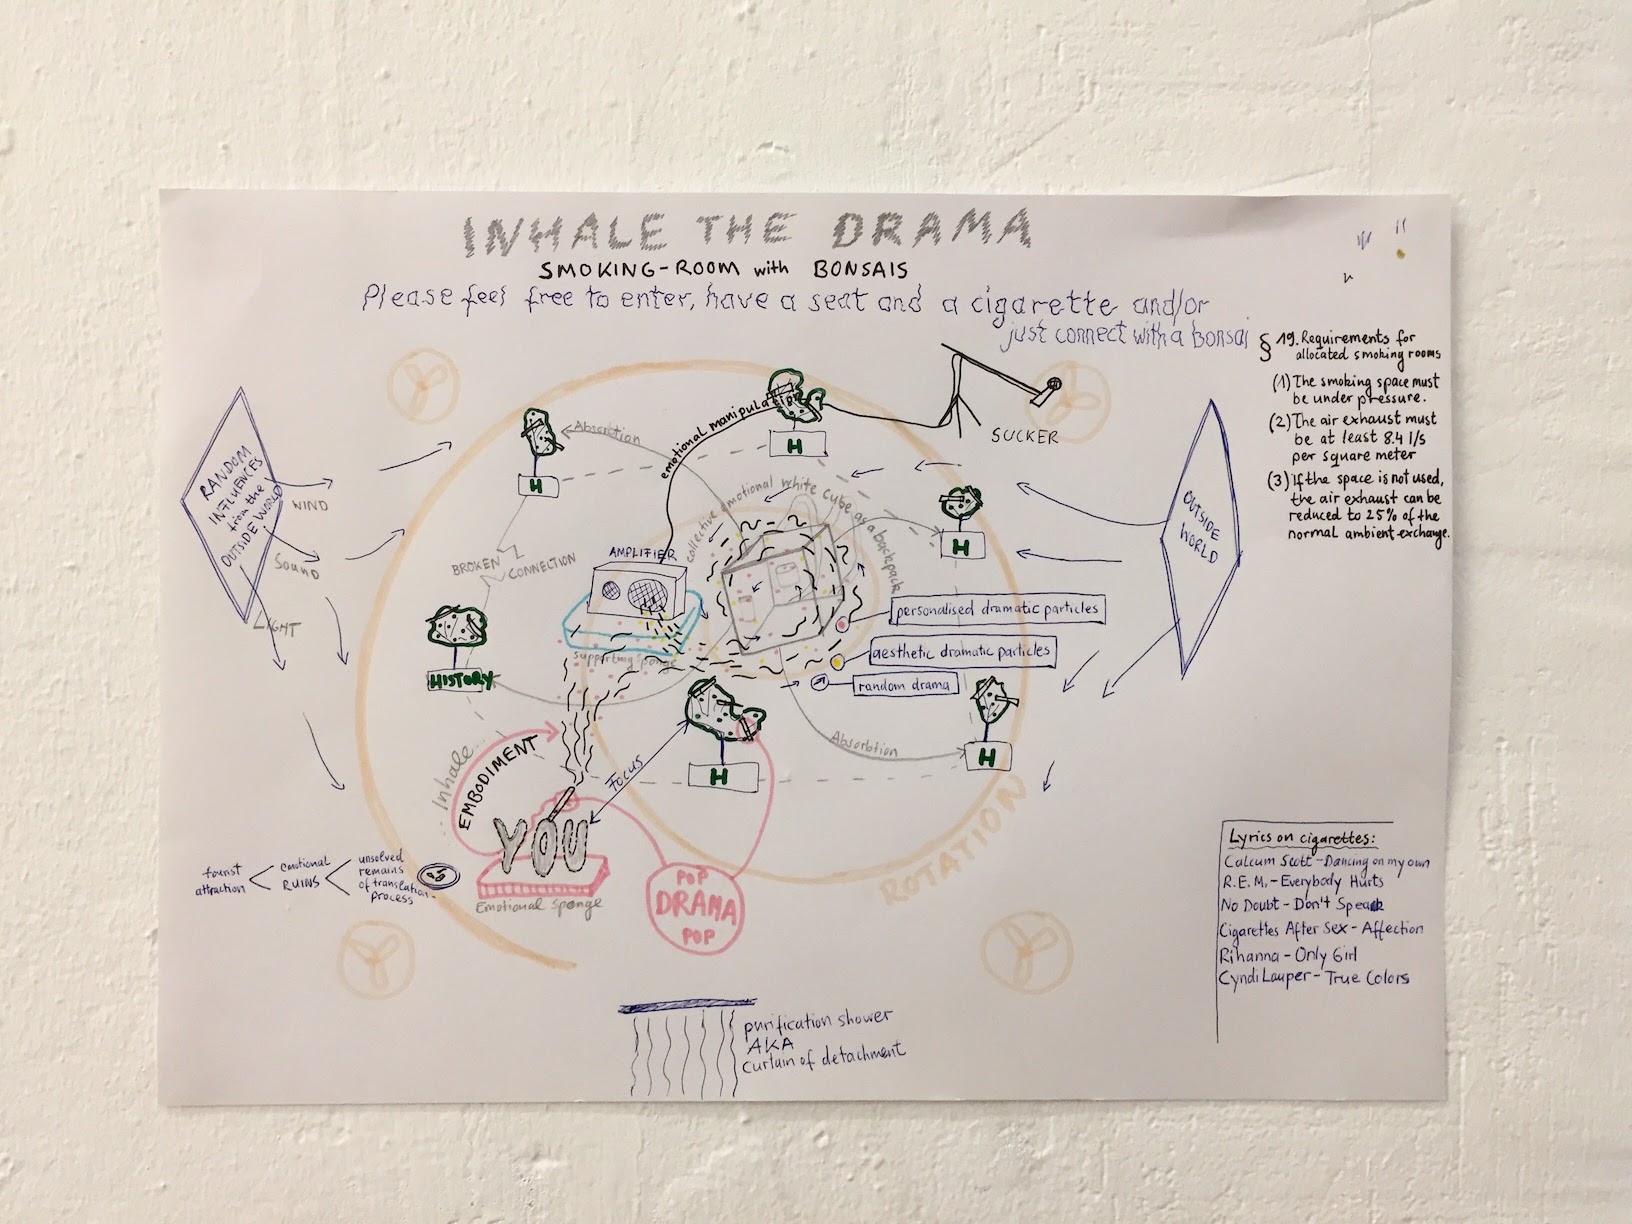 INHALE THE DRAMA
SMOKING-ROOM with BONSAIS
Please feel free to enter, have a seat and a cigarette and/or
just connect with a bonsai
§ 19. Requirements for
allocated smoking rooms
(1) The smoking space must
be under pressure.
(2) The air exhaust must
be at least 8.4 l/s
per square meter
(3) If the space is not used,
the air exhaust can be
reduced to 25% of the
normal ambient exchange.
RANDOM
INFLUENCES
from the
OUTSIDE WORLD
WIND
SOUND
LIGHT
Absorbtion
emotional manipulation
H
H
SUCKER
collective emotional white cube as a backpack
H
OUTSIDE
WORLD
BROKEN
CONNECTION
AMPLIFIER
supporting sponge
personalised dramatic particles
aesthetic dramatic particles
random drama
HISTORY
H
H
Absorbtion
Inhale
EMBODIMENT
FOCUS
YOU
Emotional sponge
POP
DRAMA
POP
ROTATION
tourist
attraction
emotional
RUINS
unsolved
remains
of translation
process
Lyrics on cigarettes:
Calcum Scott - Dancing on my own
R.E.M. - Everybody Hurts
No Doubt - Don't Speak
Cigarettes After Sex - Affection
Rihanna - Only Girl
Cyndi Lauper - True Colors
purification shower
AKA
curtain of detachment